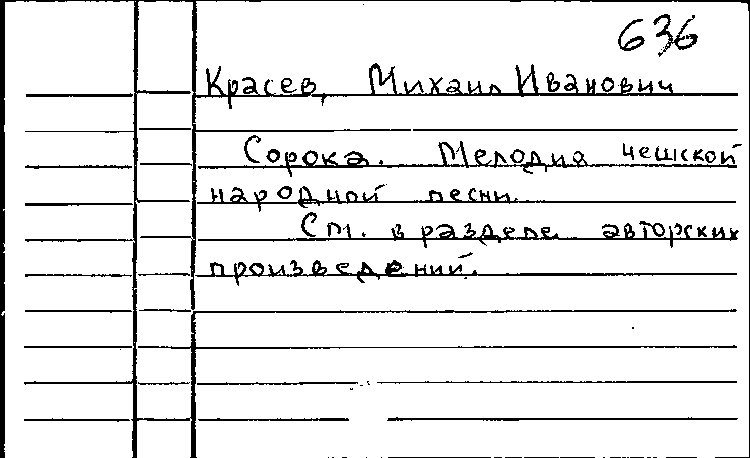 636
Красев, Михаил Иванович
Сорока. Мелодия чешской
народной песни.
См. в разделе авторских
произведений.